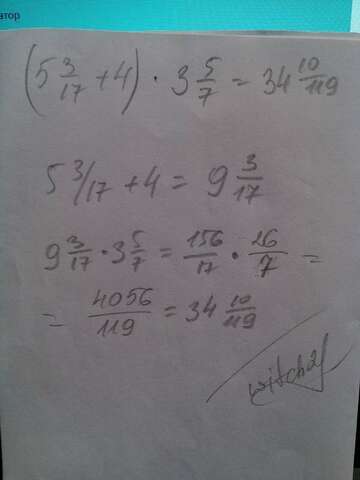 атор
(5 3/17 + 4) · 3 5/7 = 34 10/119
5 3/17 + 4 = 9 3/17
9 3/17 · 3 5/7 = 156/17 · 26/7 =
= 4056/119 = 34 10/119